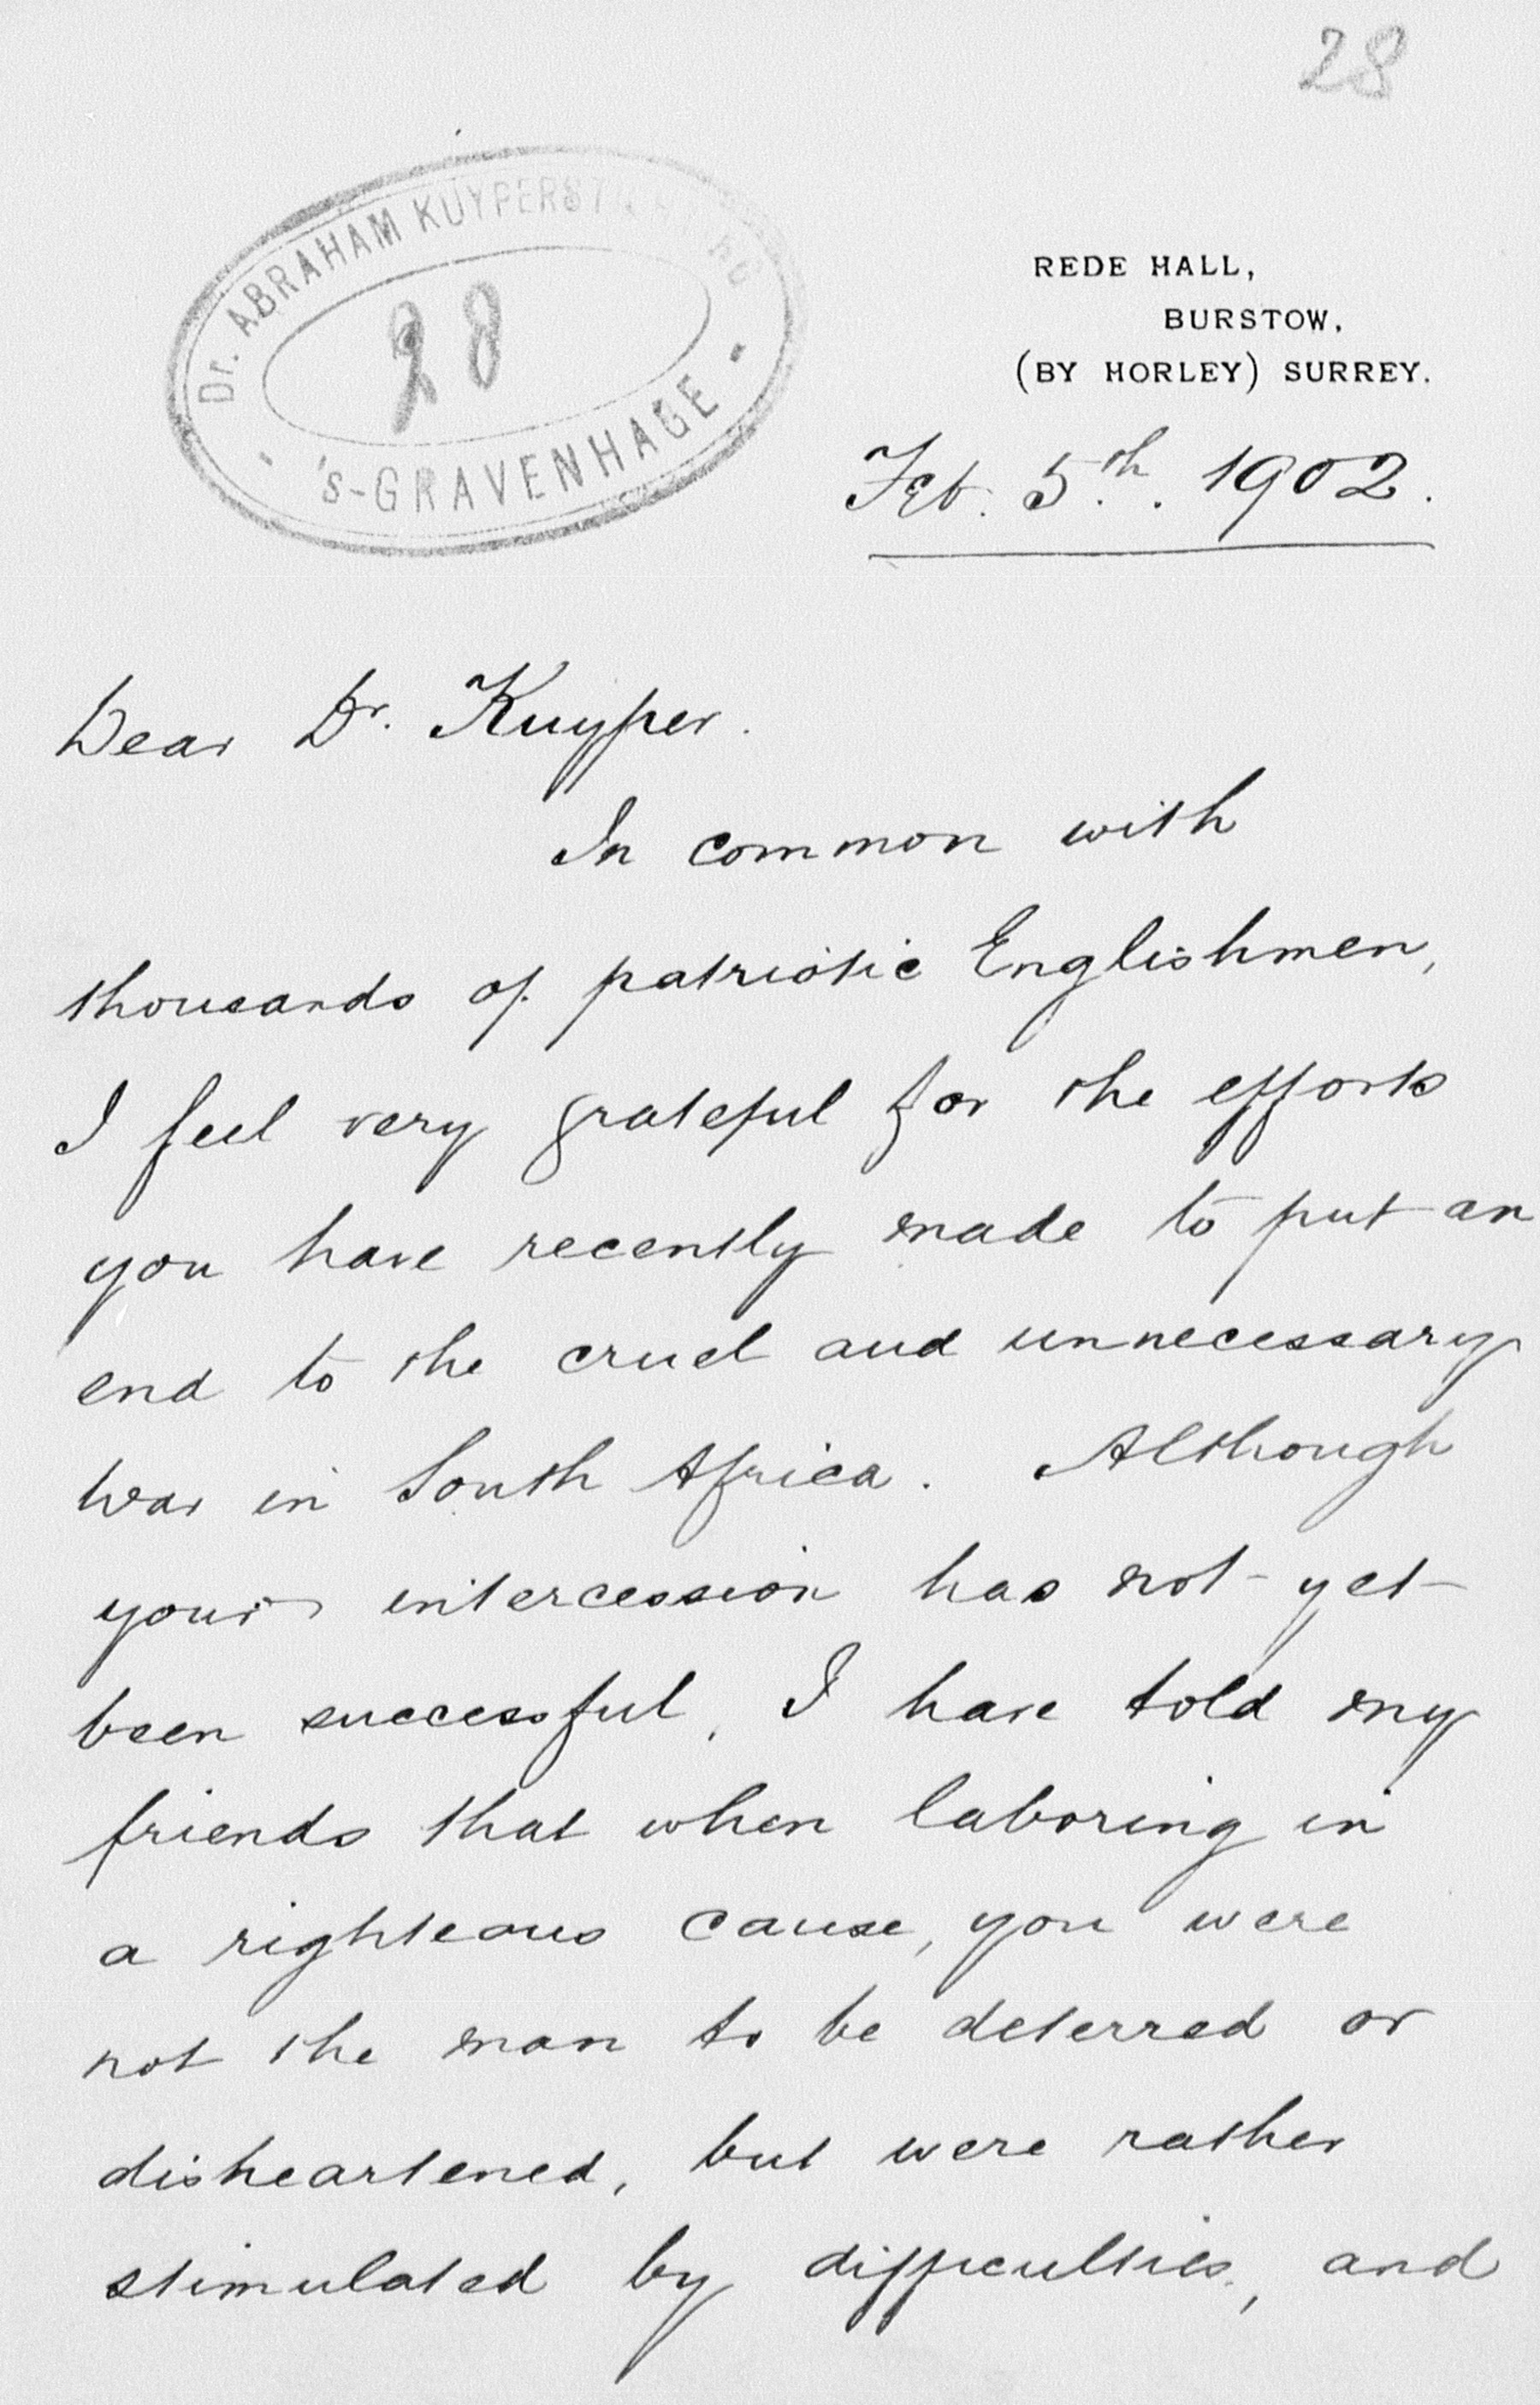 28
Dr. ABRAHAM KUYPERST
28
's-GRAVENHAGE
REDE HALL,
BURSTOW,
(BY HORLEY) SURREY.
Feb. 5th. 1902.
Dear Dr. Kuyper.
In common with
thousands of patriotic Englishmen,
I feel very grateful for the efforts
you have recently made to put an
end to the cruel and unnecessary
war in South Africa. Although
your intercession has not yet
been successful, I have told my
friends that when laboring in
a righteous cause, you were
not the man to be deterred or
disheartened, but were rather
stimulated by difficulties, and